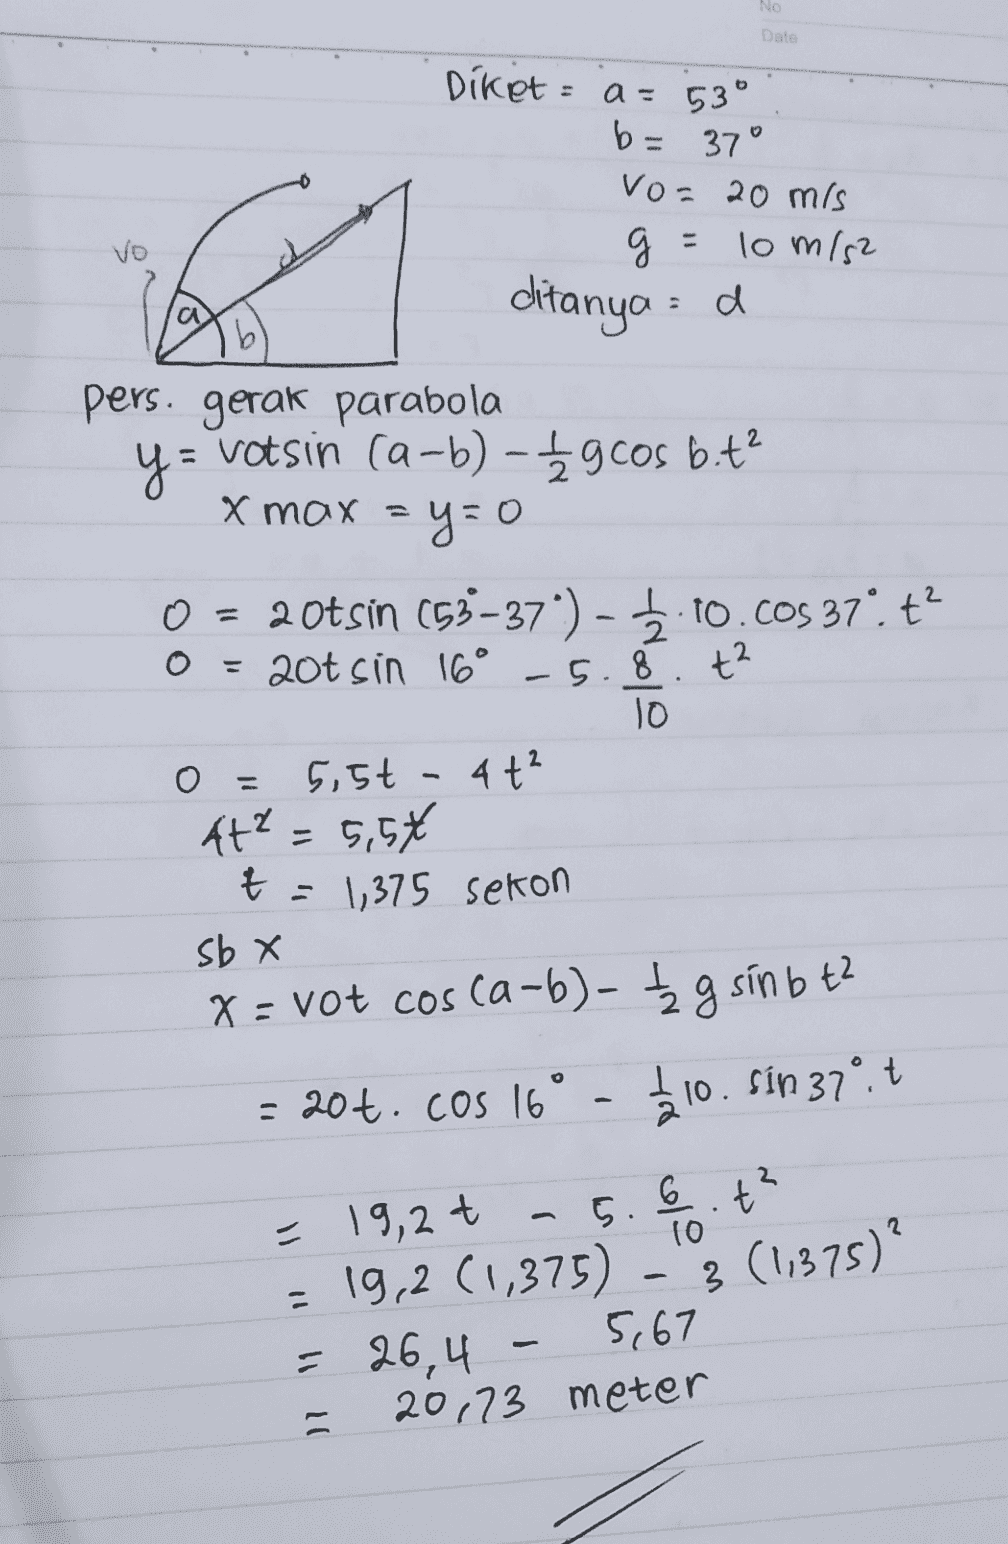 No
Date
Diket = a = 53°
b = 37°
Vo = 20 m/s
g = 10 m/s2
ditanya = d
vo
d
a
b
Pers. gerak parabola
y = votsin (a-b) - 1/2 gcos b.t²
x max = y=0
0 = 20tsin (53°-37°) - 1/2 . 10. cos 37°. t²
0 = 20t sin 16° - 5. 8/10 . t²
0 = 5,5t - 4t²
4t² = 5,5t
t = 1,375 sekon
sb x
x = vot cos (a-b) - 1/2 g sin b t²
= 20t. cos 16° - 1/2 10. sin 37°. t
= 19,2 t - 5. 6/10 . t²
= 19,2 (1,375) - 3 (1,375)²
= 26,4 - 5,67
= 20,73 meter